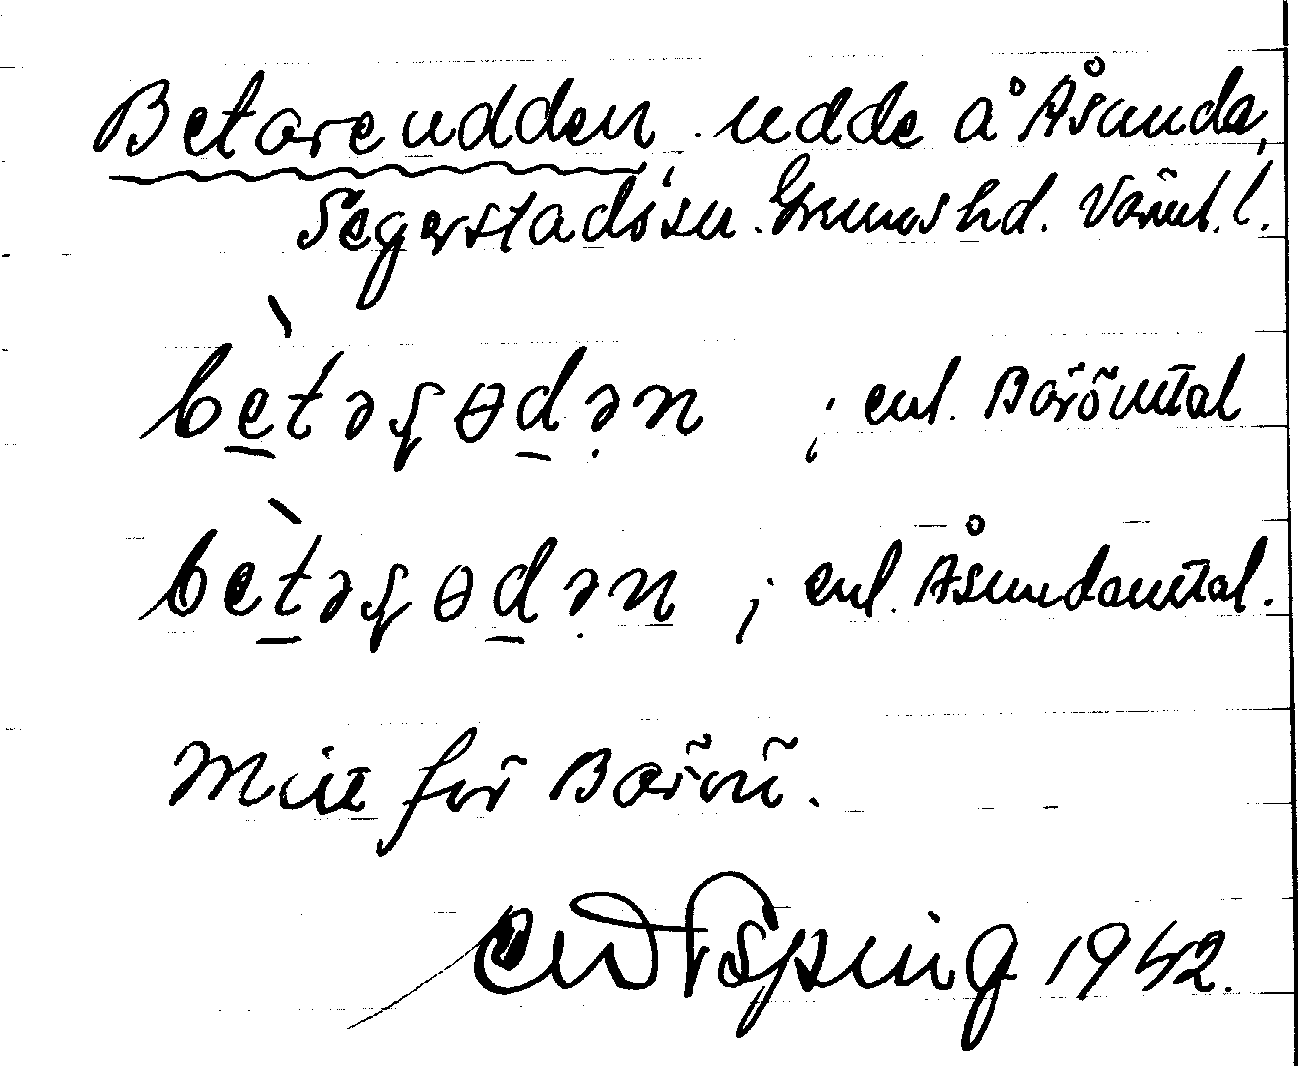 Betareudden, udde å Åsunda,
Segerstads sn. Grums hd. Värml. l.
bètəʂɵdən ; enl. Borömtal
bètəʂɵdən ; enl. Åsundamtal.
Mitt för Borön.
1942.